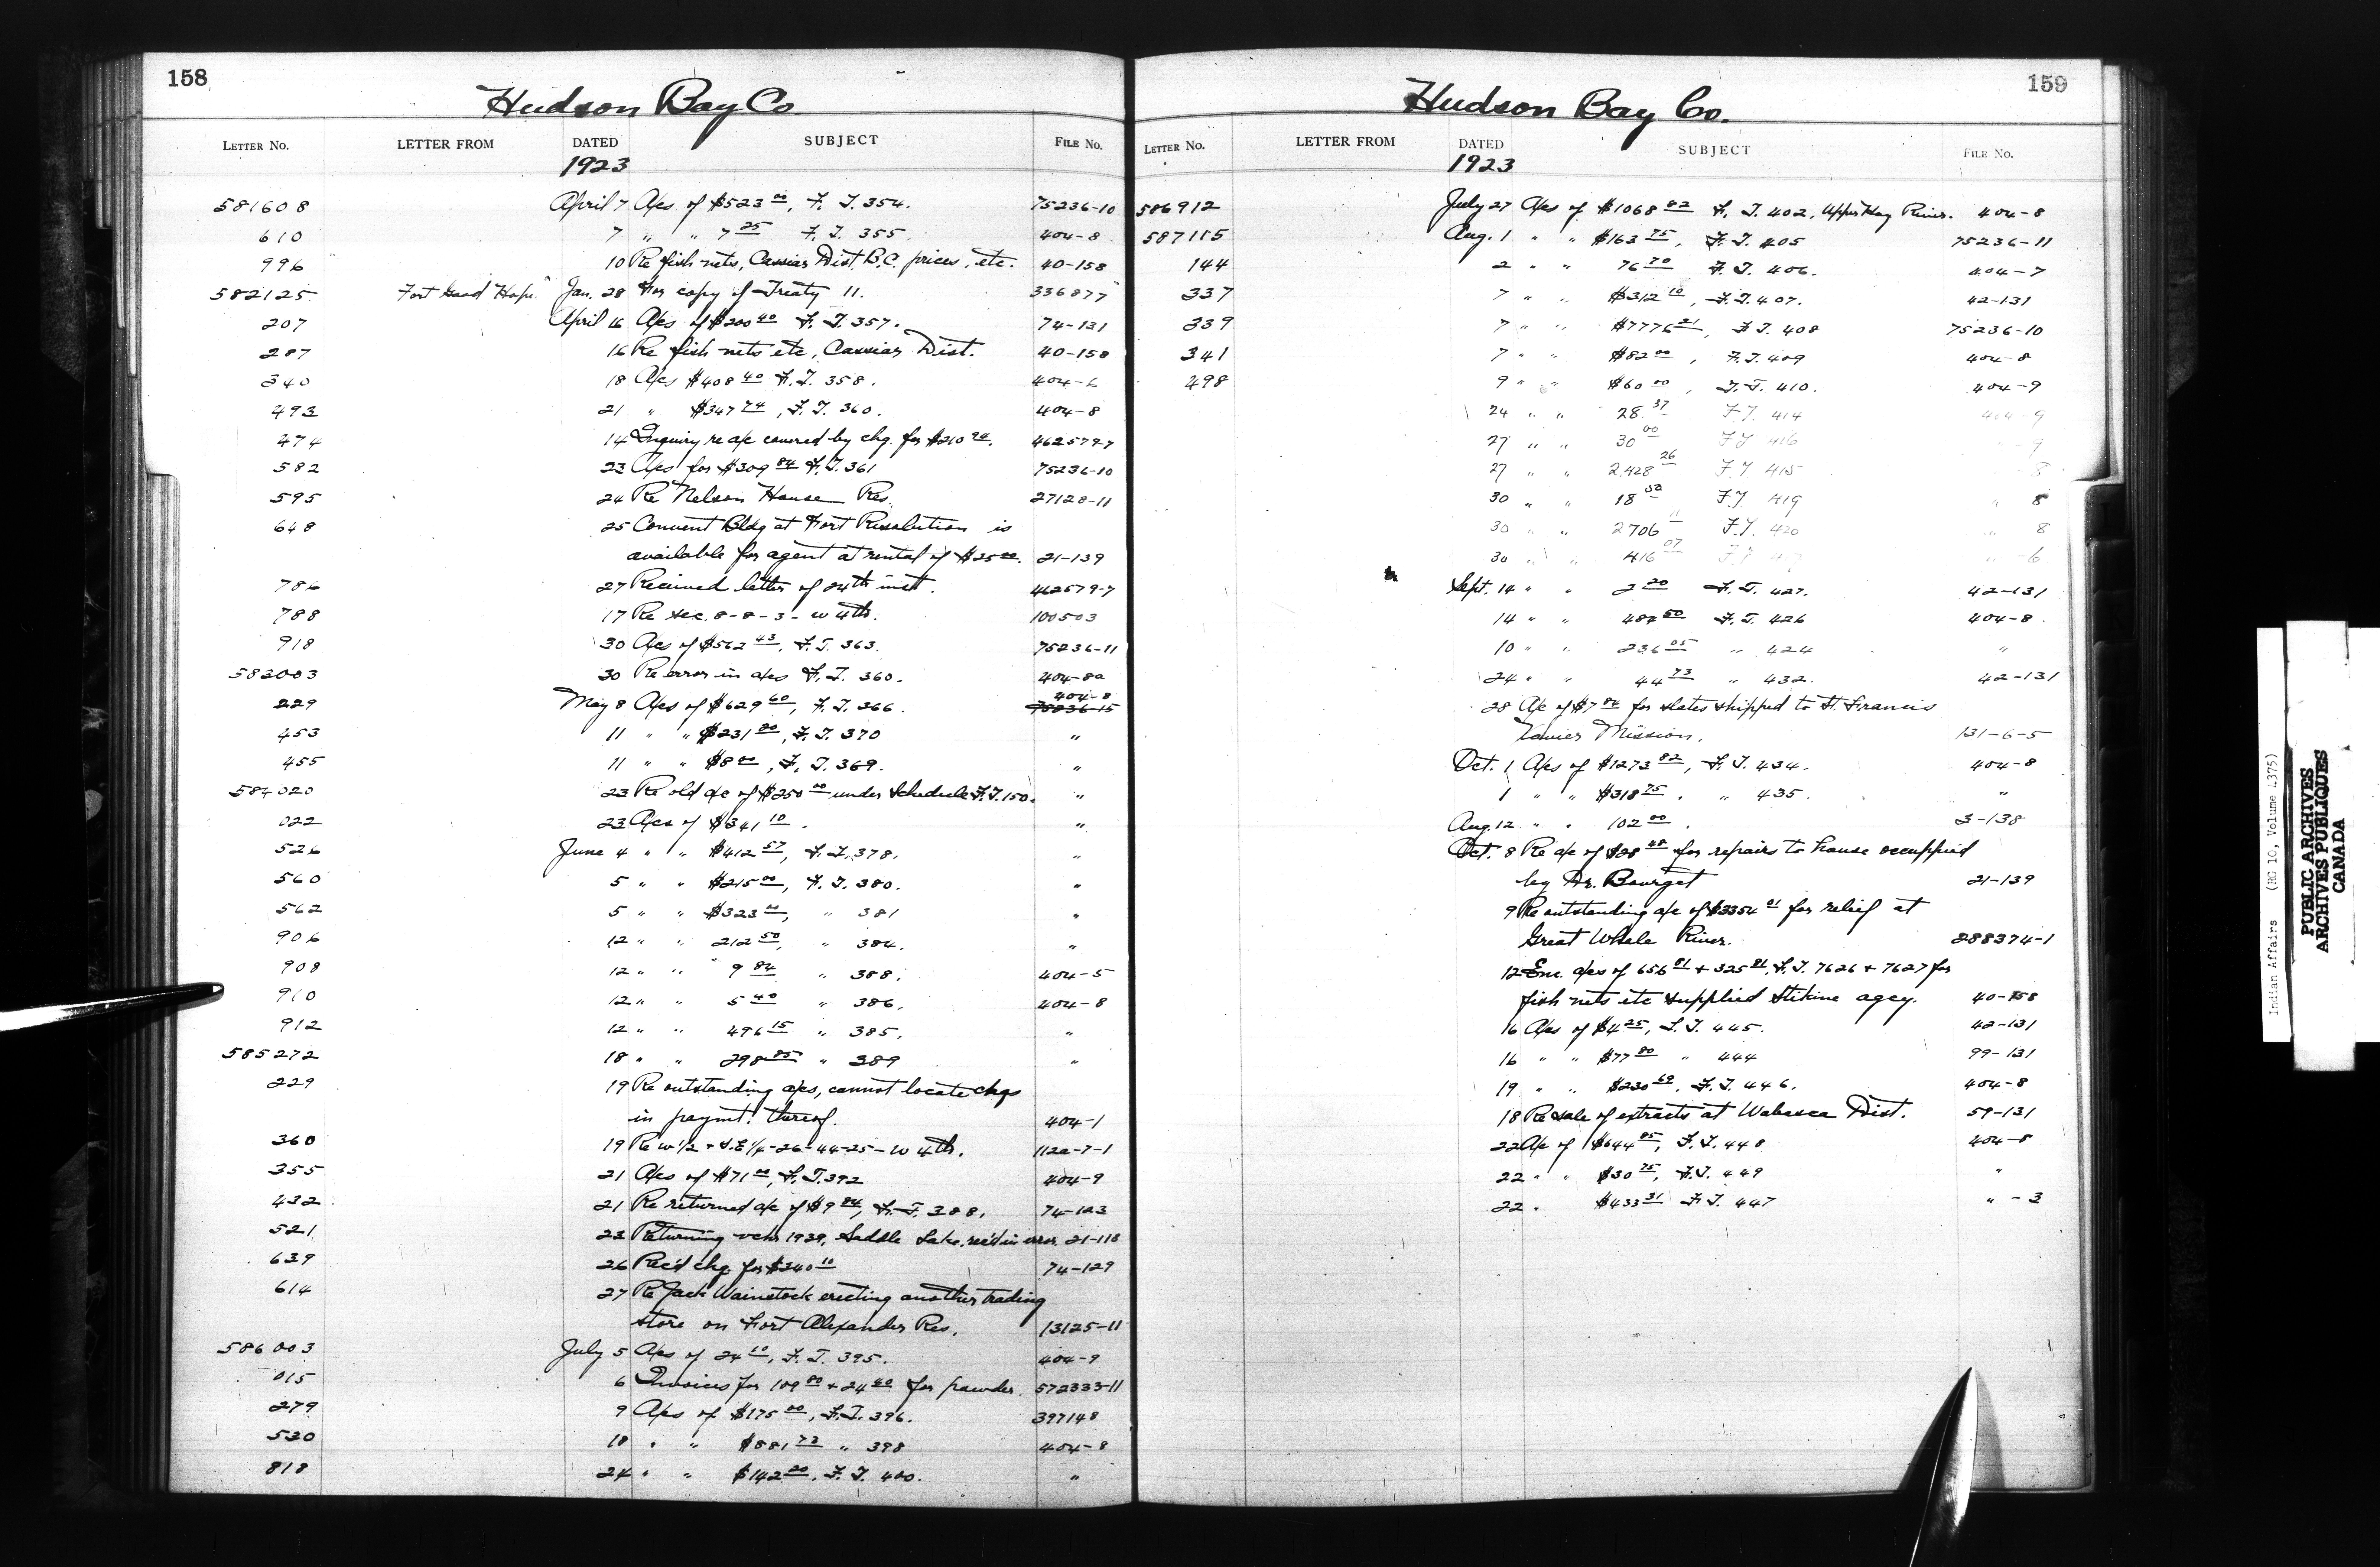 158
Hudson Bay Co.
LETTER No. LETTER FROM DATED SUBJECT FILE No.
1923
581608 April 7 A/cs of $523 00, F. T. 354. 75236-10
610 7 " " 7 25 F. T. 355. 404-8
996 10 Re fish nets, Cassiar Dist. B.C. prices, etc. 40-158
582125 Fort Good Hope Jan. 28 For copy of Treaty 11. 336877
207 April 16 A/cs of $200 40 F. T. 357. 74-131
287 16 Re fish nets etc, Cassiar Dist. 40-158
340 18 A/cs $408 40 F. T. 358. 404-6
493 21 " $347 74, F. T. 360. 404-8
474 14 Inquiry re a/c covered by chq. for $210 94. 462579-7
582 23 A/cs for $309 84 F. T. 361 75236-10
595 24 Re Nelson House Res. 27128-11
648 25 Convent Bldg at Fort Resolution is
available for agent at rental of $25 00. 21-139
786 27 Received letter of 24th inst. 462579-7
788 17 Re sec. 8-8-3-w 4th. 100503
918 30 A/cs of $562 43, F. T. 363. 75236-11
583003 30 Re error in a/cs F. T. 360. 404-8a
404-8
229 May 8 A/cs of $629 60, F. T. 366. 75236-15
453 11 " " $231 80, F. T. 370 "
455 11 " " $8 00, F. T. 369. "
584020 23 Re old a/c of $250 00 under Schedule F. T. 150. "
022 23 A/cs of $341 10. "
526 June 4 " " $412 57, F. T. 378. "
560 5 " " $215 00, F. T. 380. "
562 5 " " $323 00, " 381 "
906 12 " " 212 50, " 384. "
908 12 " " 9 84 " 388. 404-5
910 12 " " 5 40 " 386. 404-8
912 12 " " 496 15 " 385. "
585272 18 " " 298 85 " 389 "
229 19 Re outstanding a/cs, cannot locate chqs
in paymt. thereof. 404-1
360 19 Re w 1/2 + S.E 1/4-26-44-25-w 4th. 112a-7-1
355 21 A/cs of $71 00, F. T. 392 404-9
432 21 Re returned a/c of $9 84, F. T. 388. 74-123
521 23 Returning vchr 1939, Saddle Lake, rec'd in error. 21-118
639 26 Rec'd chq. for $240 10 74-129
614 27 Re Jack Wainstock erecting another trading
store on Fort Alexander Res. 13125-11
586003 July 5 A/cs of 24 10, F. T. 395. 404-9
015 6 Invoices for 109 80 + 24 40 for powder. 572333-11
279 9 A/cs of $175 00, F. T. 396. 397148
530 18 " " $881 73 " 398 404-8
818 24 " " $142 20, F. T. 400. "
159
Hudson Bay Co.
LETTER No. LETTER FROM DATED SUBJECT FILE No.
1923
586912 July 27 A/cs of $1068 82 F. T. 402, Upper Hay River. 404-8
587115 Aug. 1 " " $163 75, F. T. 405 75236-11
144 2 " " 76 70 F. T. 406. 404-7
337 7 " " $312 10, F. T. 407. 42-131
339 7 " " $7776 21, F. T. 408 75236-10
341 7 " " $82 00, F. T. 409 404-8
298 9 " " $60 00, F. T. 410. 404-9
24 " " 28 37 F. T. 414 404-9
27 " " 30 00 F T 416 -9
27 " " 2,428 26 F. T 415 -8
30 " " 18 50 F. T 419 " 8
30 " " 2706 11 F. T. 420 " 8
30 " " 416 07 F T " -6
Sept. 14 " " 2 20 F. T. 427. 42-131
14 " " 484 50 F. T. 426 404-8
10 " " 236 05 " 424 "
24 " " 44 73 " 432. 42-131
28 A/c of $7 84 for slates shipped to St. Francis
Xavier Mission. 131-6-5
Oct. 1 A/cs of $1273 82, F. T. 434. 404-8
1 " " $318 75. " 435. "
Aug. 12 " " 102 00. 3-138
Oct. 8 Re a/c of $28 48 for repairs to house occuppied
by Dr. Bourget 21-139
9 Re outstanding a/c of $3354 01 for relief at
Great Whale River. 288374-1
12 Enc. a/cs of 656 81 + 325 81, F. T. 7626 + 7627 for
fish nets etc supplied Stikine agcy. 40-158
16 A/cs of $4 25, F. T. 445. 42-131
16 " " $77 80 " 444 99-131
19 " " $230 69, F. T. 446. 404-8
18 Re sale of extracts at Wabasca Dist. 59-131
22 A/c of $644 85, F. T. 448 404-8
22 " " $30 75, F. T. 449 "
22 " $433 31 F. T. 447 " -3
Indian Affairs (RG 10, Volume 4375)
PUBLIC ARCHIVES
ARCHIVES PUBLIQUES
CANADA